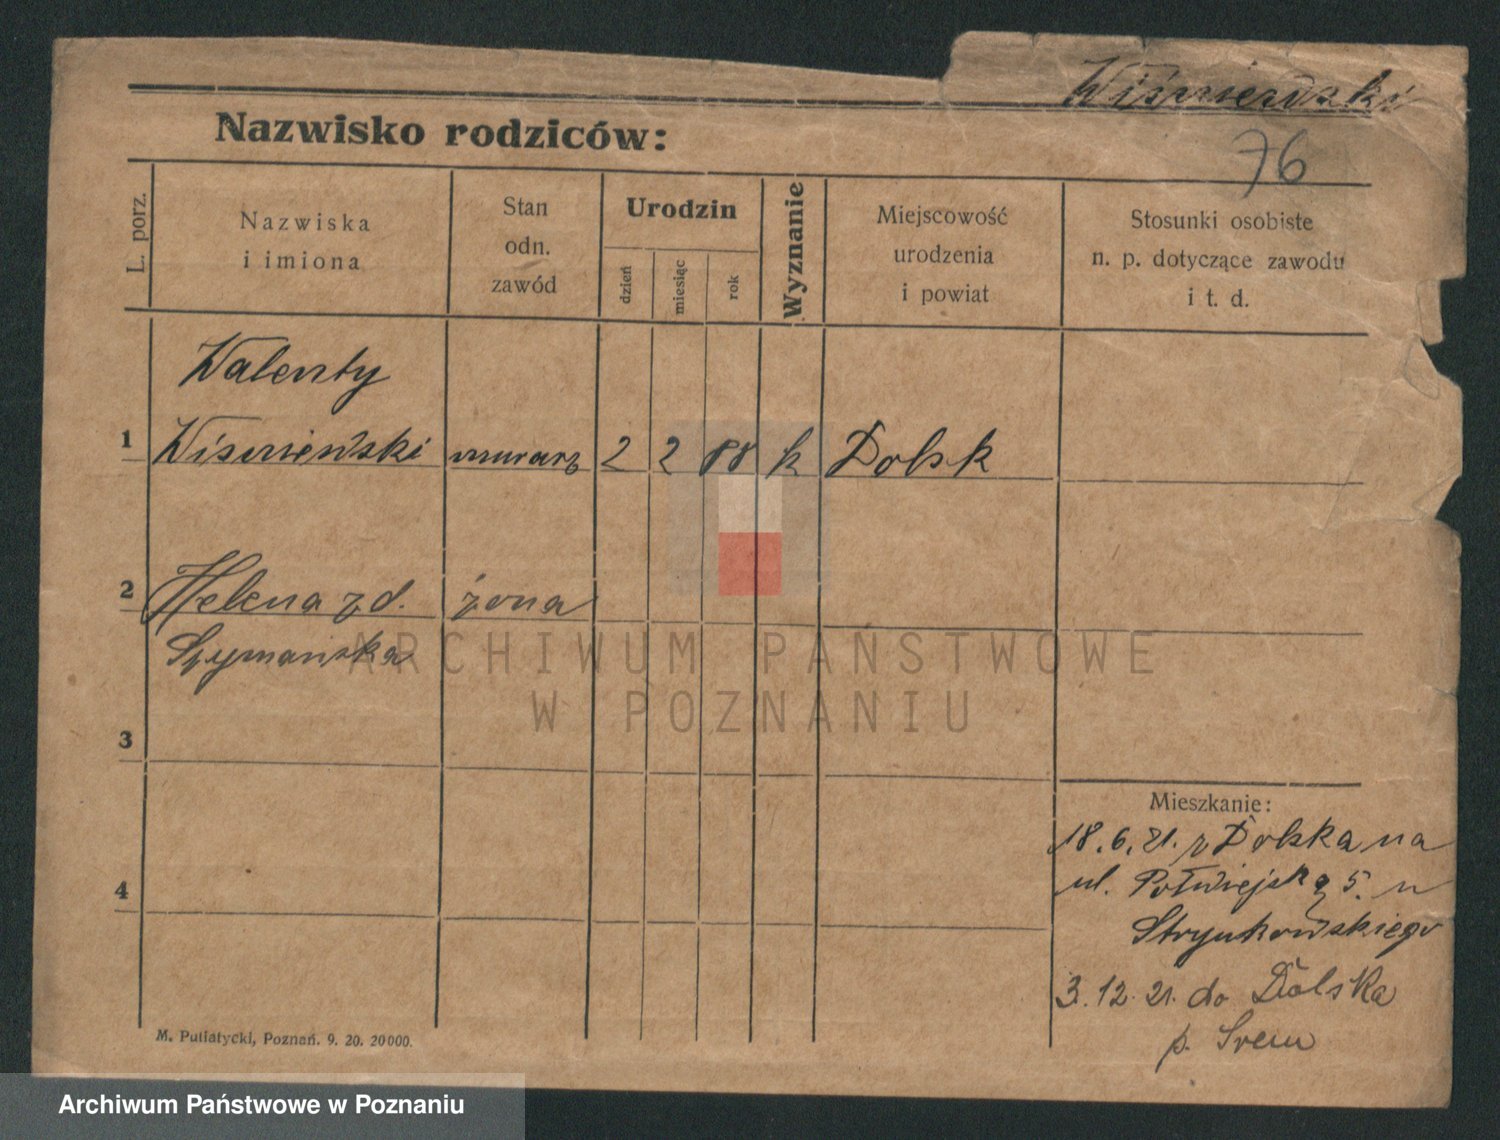 Wiśniewski
76
Nazwisko rodziców:
L. porz.
Nazwiska
i imiona
Stan
odn.
zawód
Urodzin
dzień
miesiąc
rok
Wyznanie
Miejscowość
urodzenia
i powiat
Stosunki osobiste
n. p. dotyczące zawodu
i t. d.
Walenty
1 Wiśniewski murarz 2 2 88 k Dolsk
2 Helena z d. żona
Szymańska
3
4
Mieszkanie:
18.6.21. z Dolska na
ul. Półwiejską 5. u
Strykowskiego
3.12.21. do Dolska
p. Śrem
M. Putiatycki, Poznań. 9. 20. 20000.
ARCHIWUM PAŃSTWOWE
W POZNANIU
Archiwum Państwowe w Poznaniu